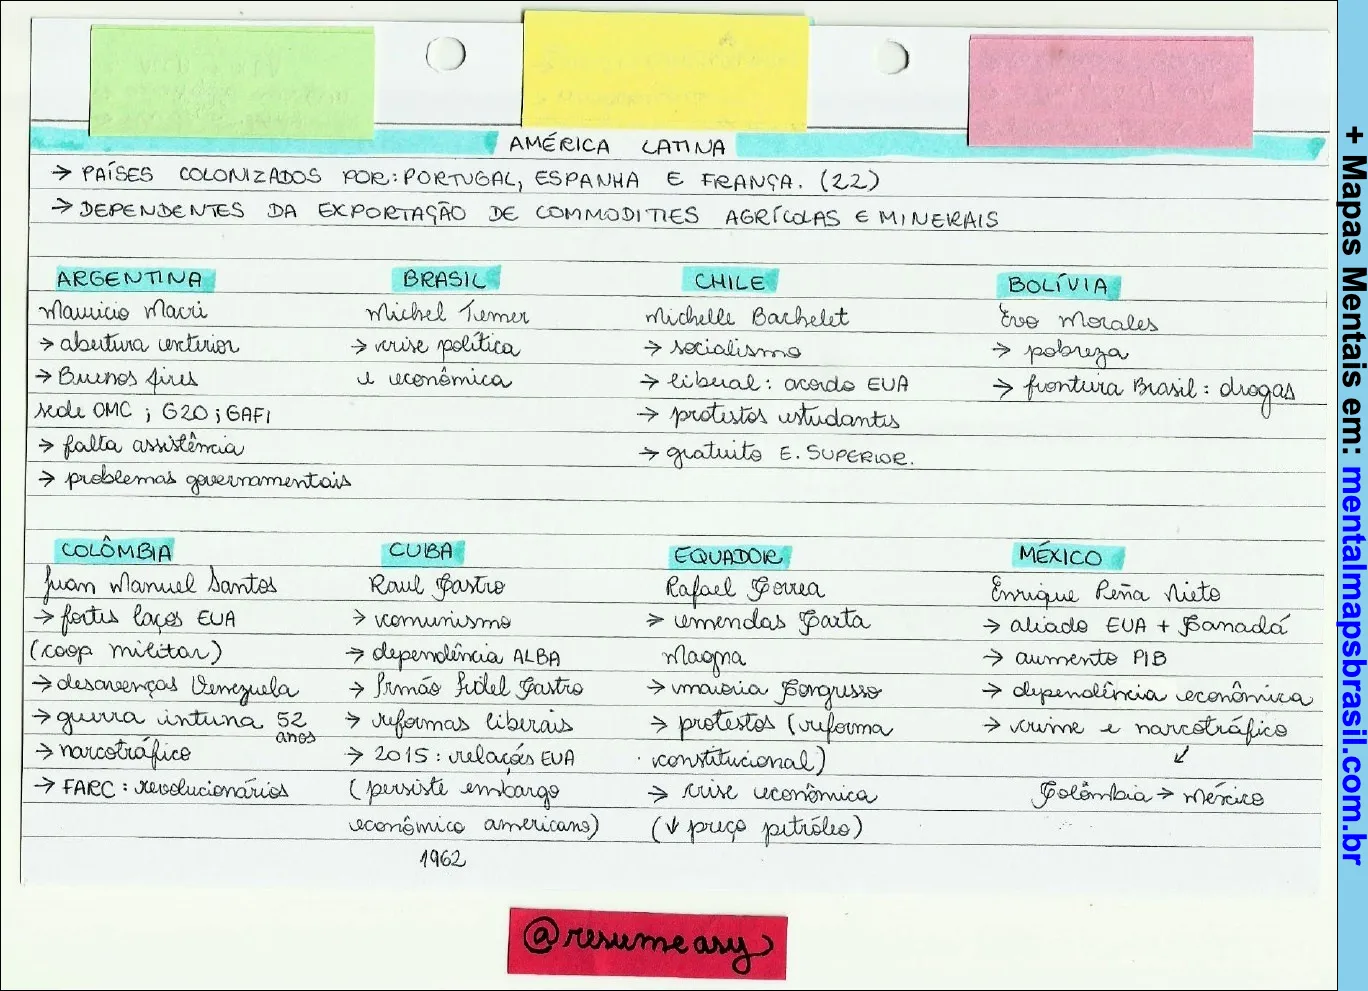 AMÉRICA LATINA
→ PAÍSES COLONIZADOS POR: PORTUGAL, ESPANHA E FRANÇA. (22)
→ DEPENDENTES DA EXPORTAÇÃO DE COMMODITIES AGRÍCOLAS E MINERAIS
ARGENTINA
Mauricio Macri
→ abertura exterior
→ Buenos Aires
sede OMC ; G20 ; GAFI
→ falta assistência
→ problemas governamentais
BRASIL
Michel Temer
→ crise política
e econômica
CHILE
Michelle Bachelet
→ socialismo
→ liberal : acordo EUA
→ protestos estudantis
→ gratuito E. SUPERIOR.
BOLÍVIA
Evo Morales
→ pobreza
→ fronteira Brasil : drogas
COLÔMBIA
Juan Manuel Santos
→ fortes laços EUA
(coop militar)
→ desavenças Venezuela
→ guerra interna 52
anos
→ narcotráfico
→ FARC : revolucionários
CUBA
Raul Castro
→ comunismo
→ dependência ALBA
→ Irmão Fidel Castro
→ reformas liberais
→ 2015 : relações EUA
(persiste embargo
econômico americano)
1962
EQUADOR
Rafael Correa
→ emendas Carta
Magna
→ maioria Congresso
→ protestos (reforma
constitucional)
→ crise econômica
(↓ preço petróleo)
MÉXICO
Enrique Peña Nieto
→ aliado EUA + Canadá
→ aumento PIB
→ dependência econômica
→ crime e narcotráfico
↙
Colômbia → México
@resumeasy
+ Mapas Mentais em: mentalmapsbrasil.com.br